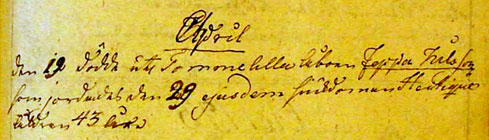 April
den 19 dödde uti Tommelilla åboen Jeppa Nilsson
som jordades den 29 ejusdem siukdomen Hectique
åldren 43 åhr